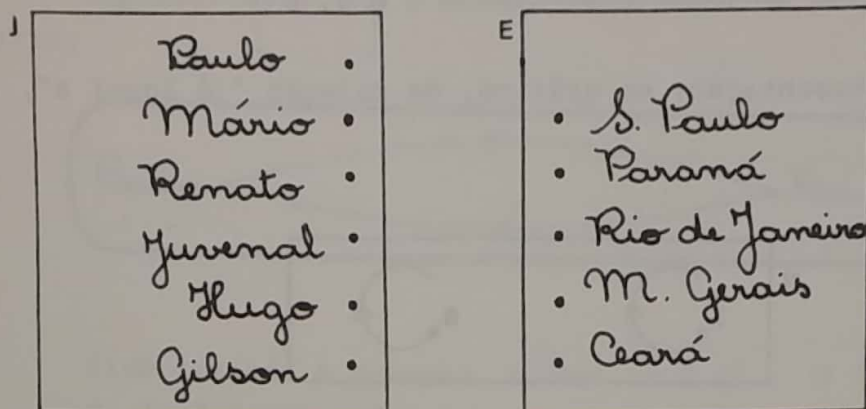 J
Paulo
Mário
Renato
Juvenal
Hugo
Gilson
E
S. Paulo
Paraná
Rio de Janeiro
M. Gerais
Ceará